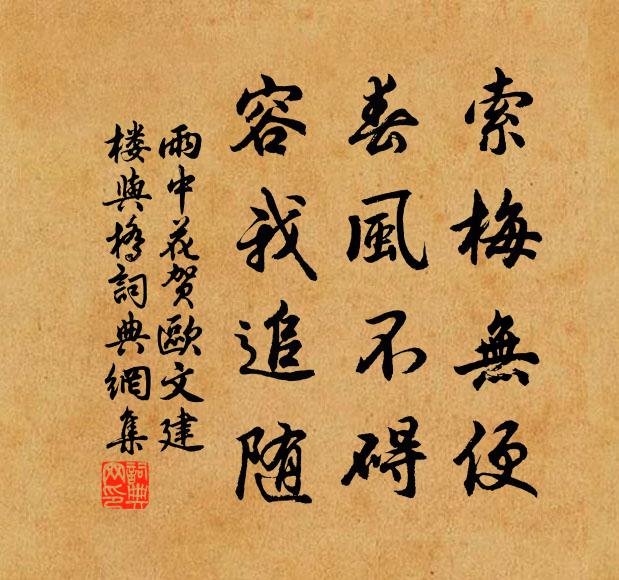 索梅無便
春風不碍
容我追随
雨中花賀歐文建
楼與橋詞典網集
詞典
网印